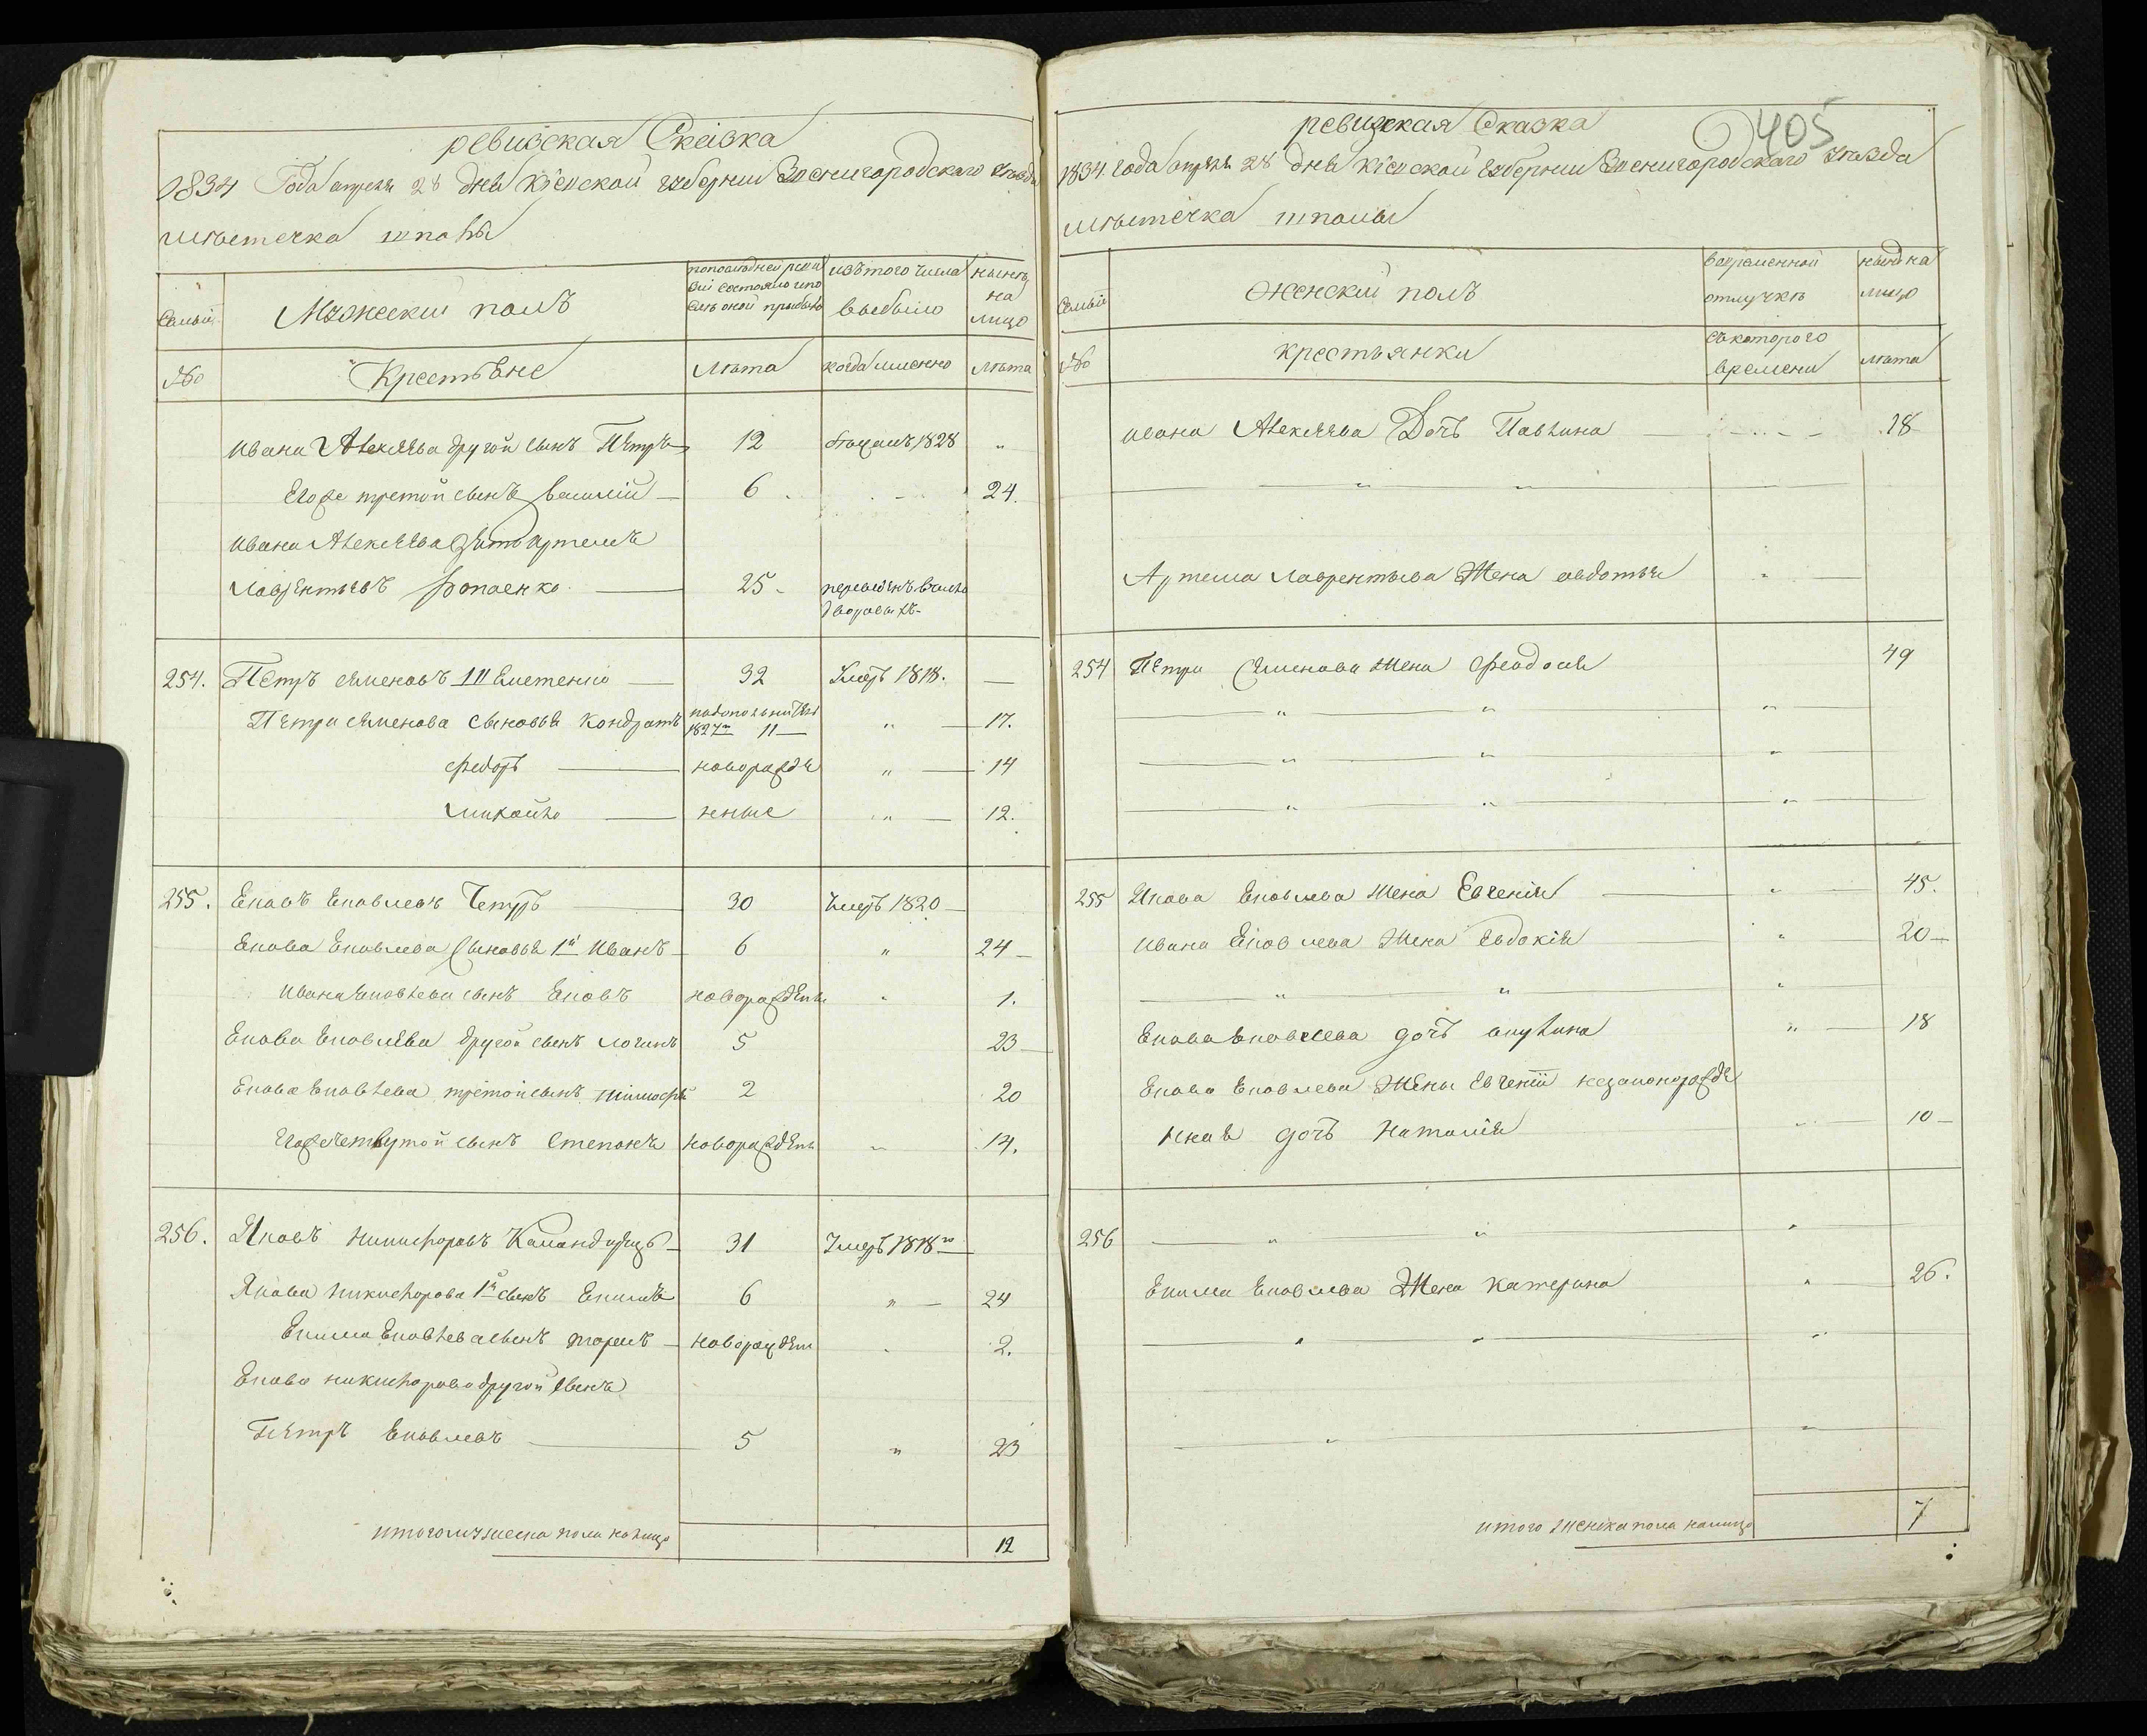 ревизская Сказка
1834 Года апреля 28 дня Кіевской губерніи Звенигородскаго уезда
местечка шполы
Семьи
Мужескій полъ
по последней реви
зіи состояло и по
сле оной прибыло
изъ того числа
выбыло
ныне
на
лицо
№
Крестьяне
Лета
когда именно
лета
Ивана Алексеева другой сынъ Петръ 12 1828 "
Его же третой сынъ Василій 6 24.
Ивана Алексеева зять Артемъ
Лаврентьевъ 25
дворовыхъ
254. Петръ Семеновъ 32 Умеръ 1818.
Петра Семенова сыновья Кондратъ
1827 11 " 17.
Федоръ новорожде " 14
Михайло нные " 12.
255. ЕковъЕковлевъ 30 Умеръ 1820
ЕковаЕковлева Сыновья 1й Иванъ 6 " 24
Ивана Ековлева сынъ Ековъ новорожден " 1.
Екова Ековлева другой сынъ Логинъ 5 23
Екова Ековлева третой сынъ Тимофей 2 20
Его же четвертой сынъ Степанъ новорожден " 14.
256. Яковъ Никифоровъ 31 Умеръ 1818го
Якова Никифорова 1й сынъ Екимъ 6 " 24
Екима Ековлева сынъ новорожден " 2.
Екова Никифорова другой сынъ
Петръ Ековлевъ 5 " 23
итого мужеска пола налицо 12
405
ревизская Сказка
1834 года апреля 28 дня Кіевской губерніи Звенигородскаго уезда
местечка шполы
Семьи
Женскій полъ
во временной
отлучке
ныне на
лицо
№
крестьянки
съ которого
времени
лета
Ивана Алексеева Дочь Павлина 18
" "
Артема Лаврентьева Жена Авдотья "
254 Петра Семенова Жена Феодосія 49
" " "
" " "
" " "
255 Якова Ековлева Жена Евгенія " 45.
Ивана Ековлева Жена Евдокія " 20
" " "
Екова Ековлева дочь Акулина " 18
Екова Ековлева Жены Евгеніи незаконорожде
нная дочь Наталія " 10
256 " " "
Екима Ековлева Жена Катерина " 26.
" " "
" "
итого женска пола налицо 7